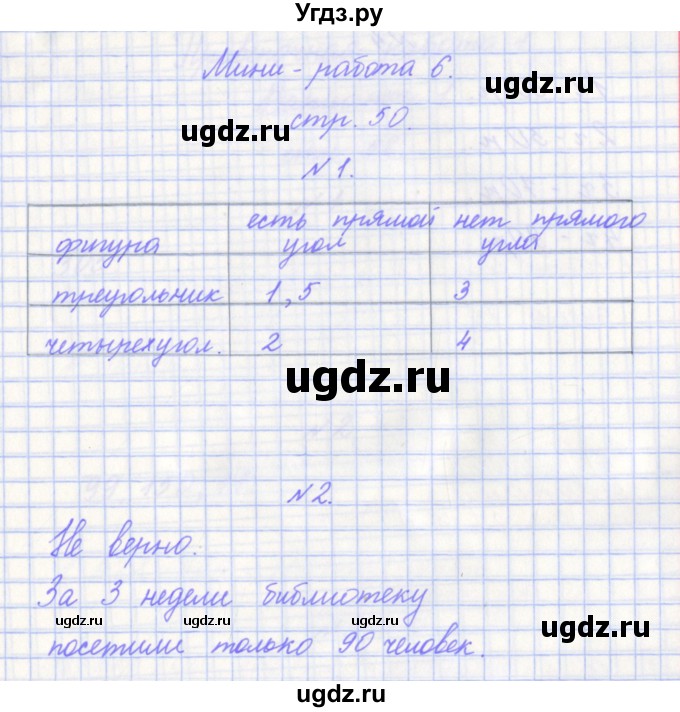 Угдз.ру
Мини-работа 6.
ugdz.ru
ugdz.ru
стр. 50.
№1.
фигура есть прямой угол нет прямого угла
треугольник 1,5 3
четырехугол. 2 4
ugdz.ru
№2.
Не верно.
За 3 недели библиотеку
ugdz.ru ugdz.ru ugdz.ru ugdz.ru
посетили только 90 человек.
ugdz.ru